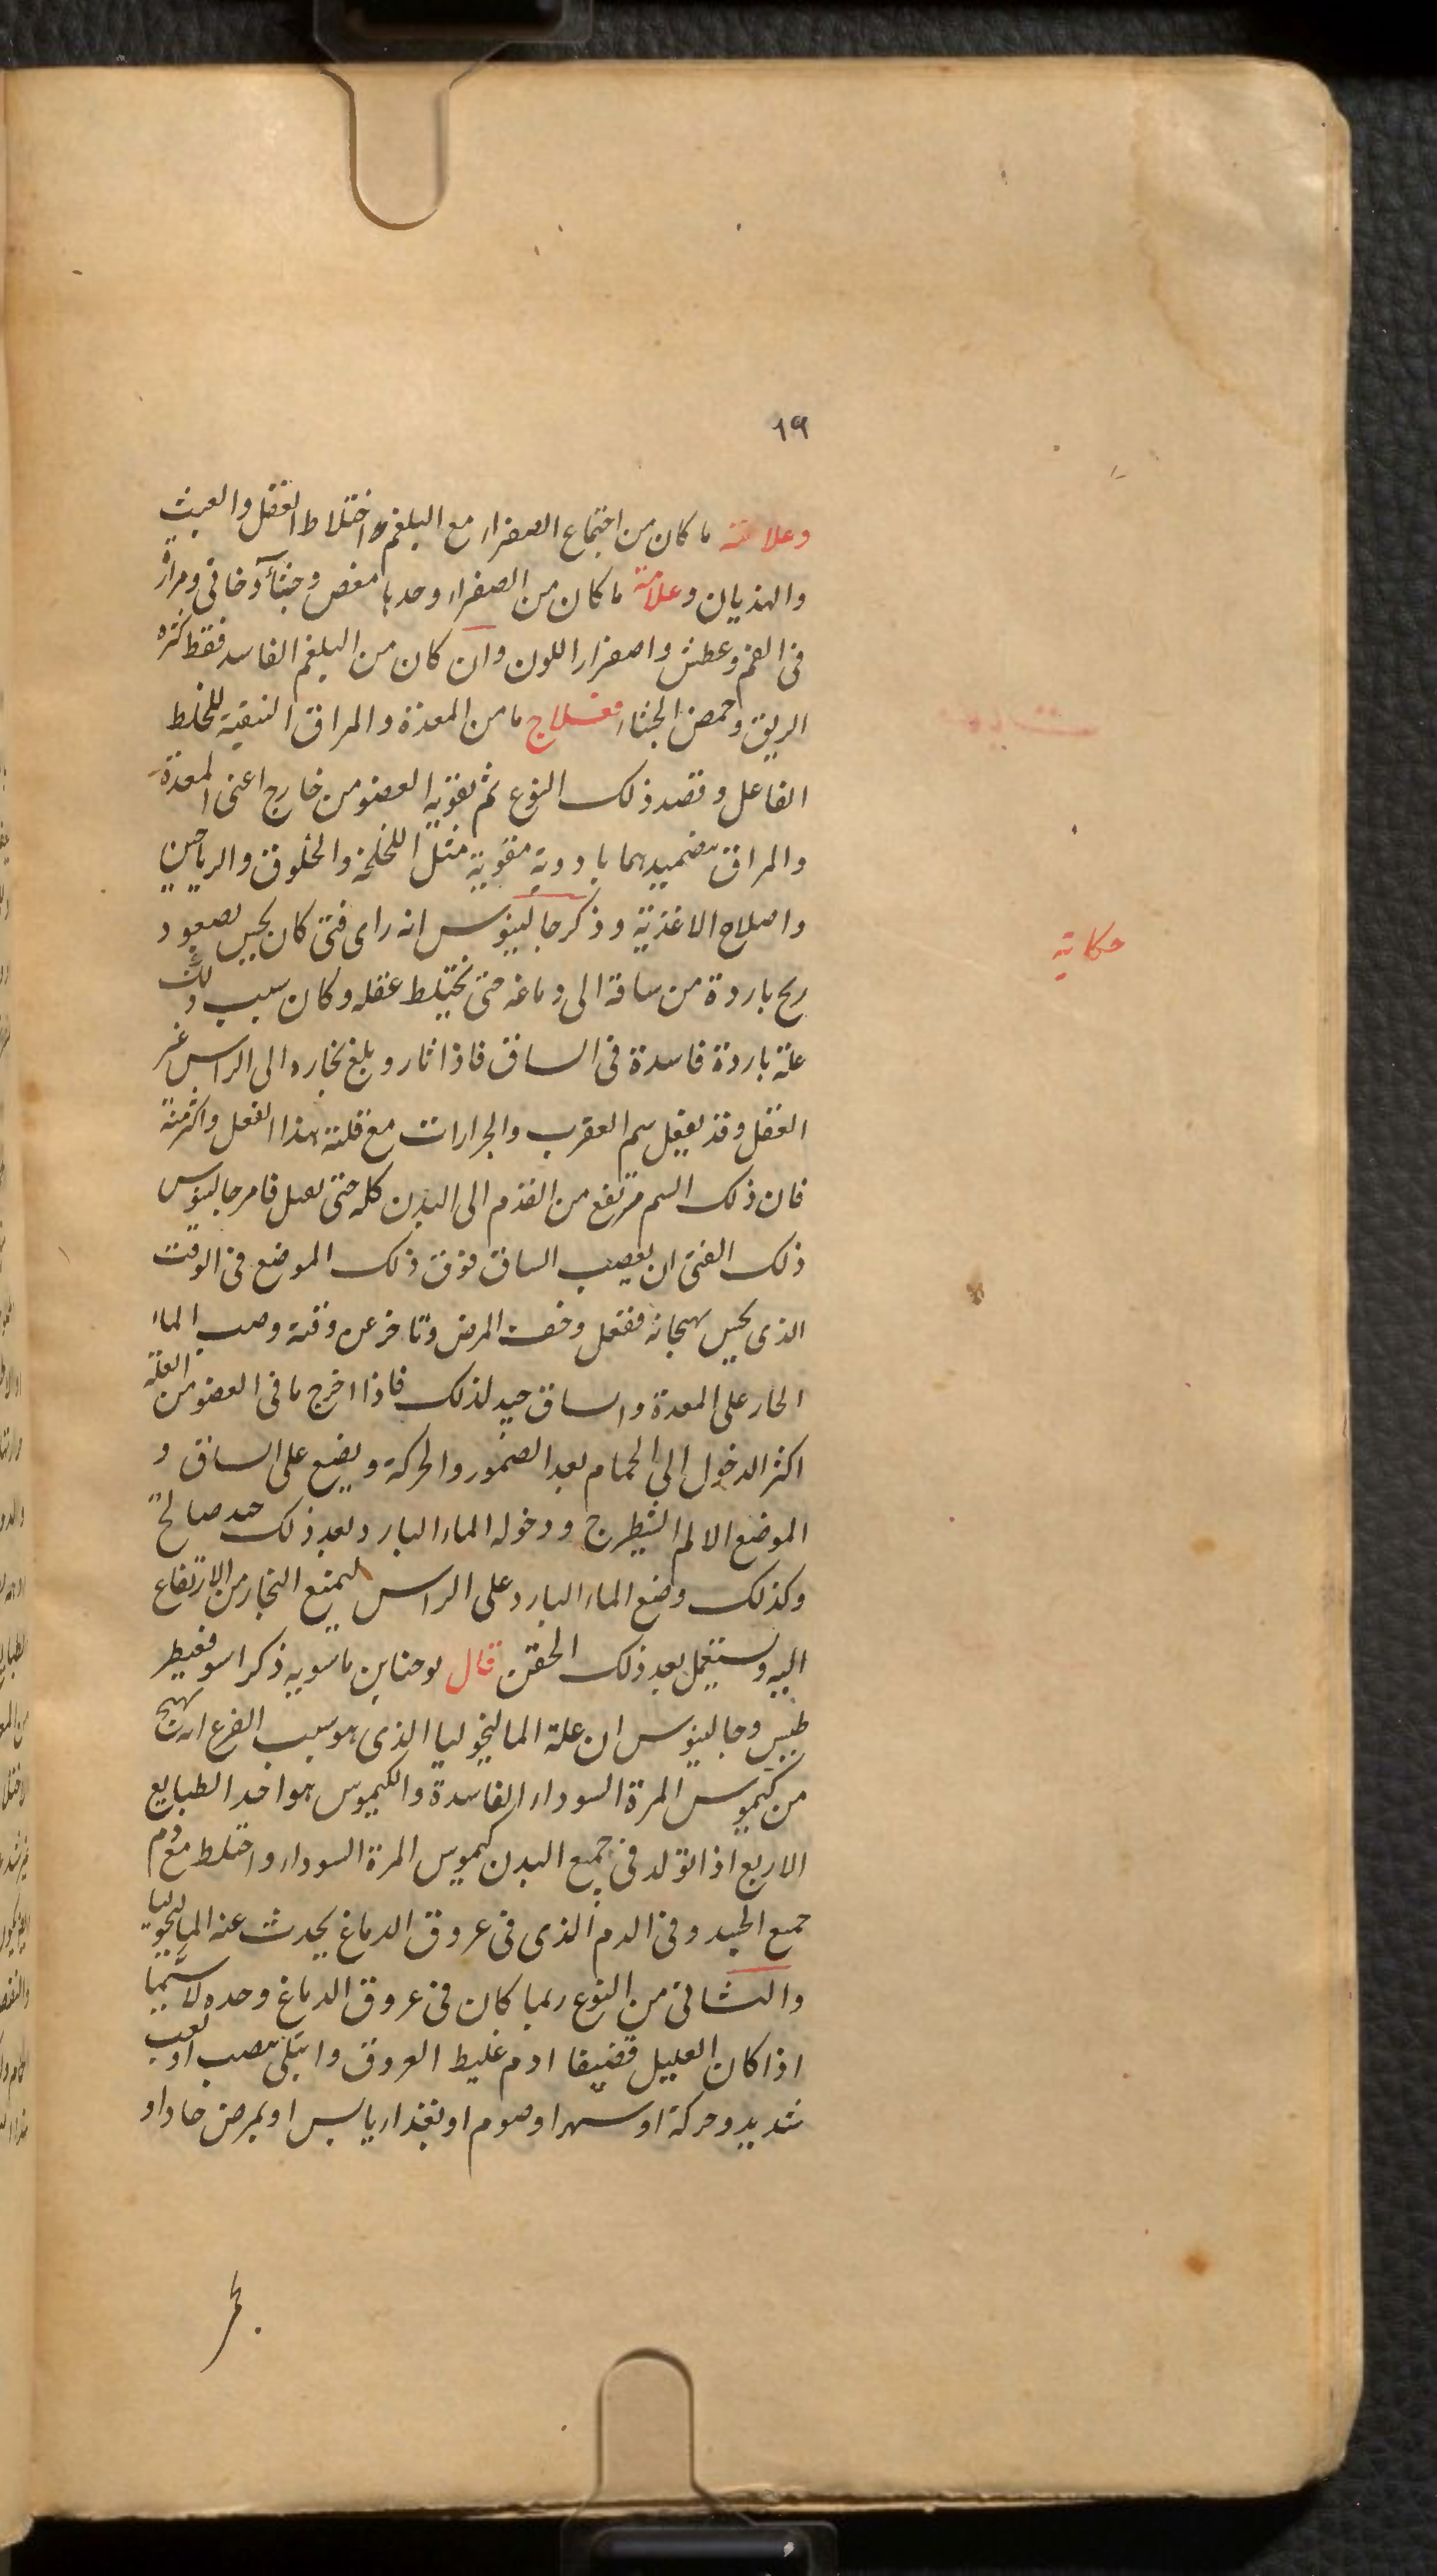 ١٩
وعلامته ما كان من اجتماع الصفراء مع البلغم واختلاط العقل والعبث
والهذيان وعلامة ما كان من الصفراء وحدها مغص وجشآء دخانى ومرارة
فى الفم وعطش واصفرار اللون وان كان من البلغم الفاسد فقط كثرة
الريق وحمض الجشاء فعلاج ما من المعدة والمراق التنقية للخلط
الفاعل وقصد ذلك النوع ثم تقوية العضو من خارج اعنى المعدة
والمراق بتضميدهما بادوية مقوية مثل اللخلخة والخلوق والرياحين
واصلاح الاغذية وذكر جالينوس انه راى فتى كان يحس بصعود
حكاية
ريح باردة من ساقه الى دماغه حتى يختلط عقله وكان سبب ذلك
علة باردة فاسدة فى الساق فاذا اثار وبلغ بخاره الى الراس غير
العقل وقد يفعل سم العقرب والجرارات مع قلته هذا الفعل واكثر منه
فان ذلك السم مرتفع من القدم الى البدن كله حتى فامر جالينوس
ذلك الفتى ان يعصب الساق فوق ذلك الموضع فى الوقت
الذى يحس بهيجانه ففعل وخف المرض وتاخر عن وقته وصب الماء
الحار على المعدة والساق جيد لذلك فاذا اخرج ما فى العضو من العلة
اكثر الدخول الى الحمام بعد الضمور والحركة ويضع على الساق و
الموضع الالم الشيطرج ودخوله الماء البارد بعد ذلك جيد صالح
وكذلك وضع الماء البارد على الراس ليمنع البخار من الارتفاع
اليه ويستعمل بعد ذلك الحقن قال يوحنا بن ماسويه ذكر اسوفقيطر
طيس وجالينوس ان علة الماليخوليا الذى هو سبب الفزع انه يهيج
من كيموس المرة السوداء الفاسدة والكيموس هو احد الطبايع
الاربع اذا تولد فى جميع البدن كيموس المرة السوداء واختلط مع دم
جميع الجسد وفى الدم الذى فى عروق الدماغ يحدث عنه الماليخوليا
والثانى من النوع ربما كان فى عروق الدماغ وحده لا سيما
اذا كان العليل قضيفا ادم غليظ العروق وابتلى بنصب او تعب
شديد وحركة او سهر او صوم او بغذاء يابس او بمرض حاد او